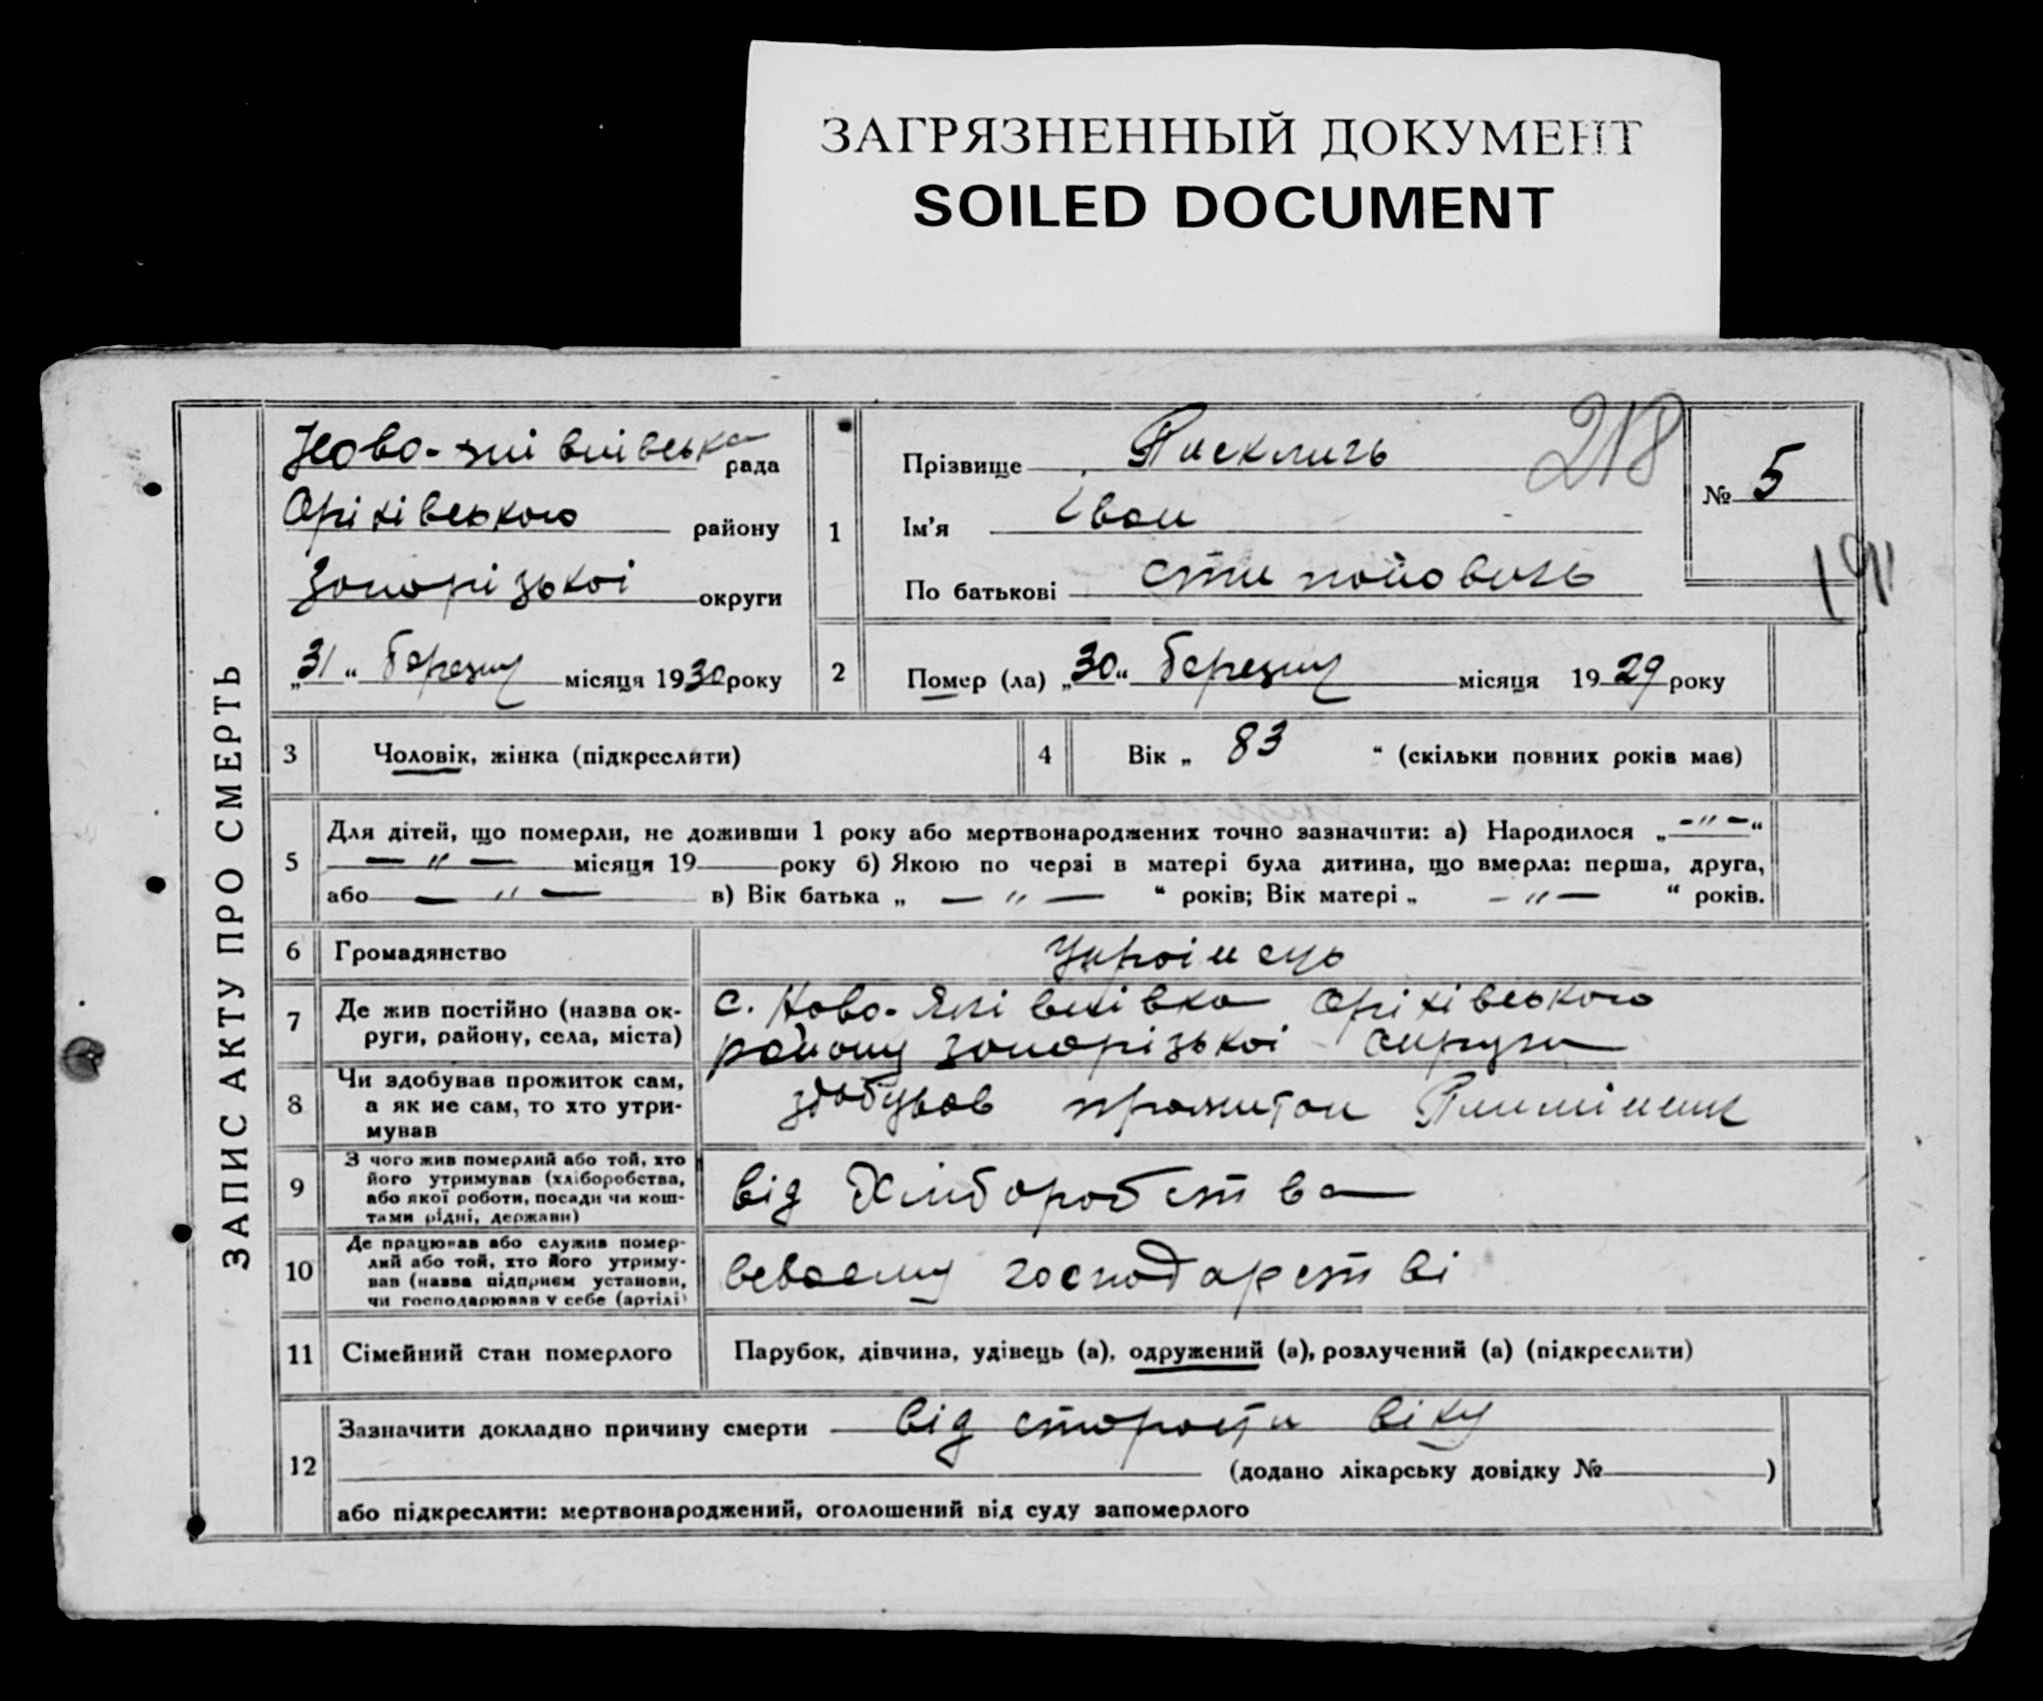 ЗАГРЯЗНЕННЫЙ ДОКУМЕНТ
SOILED DOCUMENT
ЗАПИС АКТУ ПРО СМЕРТЬ
рада
Оріхівського району
Запорізької округи
„31“ березня місяця 1930 року
1
Прізвище
Ім'я Іван
По батькові
218
№ 5
191
2
Помер (ла) „30“ березня місяця 1929 року
3
Чоловік, жінка (підкреслити)
4
Вік „ 83 “ (скільки повних років має)
5
Для дітей, що померли, не доживши 1 року або мертвонароджених точно зазначити: а) Народилося „-"-“
— " — місяця 19 року б) Якою по черзі в матері була дитина, що вмерла: перша, друга,
або — " — в) Вік батька „ — " — “ років; Вік матері „ - " — “ років.
6
Громадянство
Українець
7
Де жив постійно (назва ок-
руги, району, села, міста)
с. Ново-Яківлівка Оріхівського
району Запорізької округи
8
Чи здобував прожиток сам,
а як не сам, то хто утри-
мував
здобував прожиток
9
З чого жив померлий або той, хто
його утримував (хліборобства,
або якої роботи, посади чи кош-
тами рідні, держави)
від Хліборобства
10
Де працював або служив помер-
лий або той, хто його утриму-
вав (назва підприєм установи,
чи господарював у себе (артілі)
всвоєму господарстві
11
Сімейний стан померлого
Парубок, дівчина, удівець (а), одружений (а), розлучений (а) (підкреслити)
12
Зазначити докладно причину смерти від старости віку
(додано лікарську довідку № )
або підкреслити: мертвонароджений, оголошений від суду запомерлого